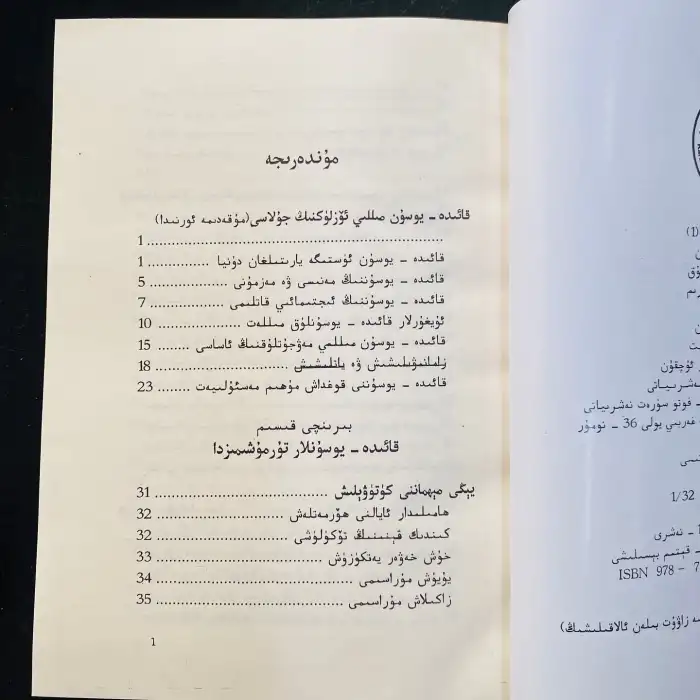 مۇندەرىجە
قائىدە - يوسۇن مىللىي ئۆزلۈكنىڭ جۇلاسى(مۇقەددىمە ئورنىدا)
1 ........................................
قائىدە - يوسۇن ئۈستىگە يارىتىلغان دۇنيا ............... 1
قائىدە - يوسۇننىڭ مەنىسى ۋە مەزمۇنى ............... 5
قائىدە - يوسۇننىڭ ئىجتىمائىي قاتلىمى ............... 7
ئۇيغۇرلار قائىدە - يوسۇنلۇق مىللەت ............... 10
قائىدە - يوسۇن مىللىي مەۋجۇتلۇقنىڭ ئاساسى ........ 15
زامانىۋىلىشىش ۋە يانلىشىش ............... 18
قائىدە - يوسۇننى قوغداش مۇھىم مەسئۇلىيەت ........ 23
بىرىنچى قىسىم
قائىدە - يوسۇنلار تۇرمۇشىمىزدا
يېڭى مېھماننى كۈتۈۋېلىش ............... 31
ھامىلىدار ئايالنى ھۆرمەتلەش ............... 32
كىندىك قېنىنىڭ تۆكۈلۈشى ............... 32
خۇش خەۋەر يەتكۈزۈش ............... 33
يۇيۇش مۇراسىمى ............... 34
زاكىلاش مۇراسىمى ............... 35
1
(1)
ئۇچقۇن
نەشرىياتى
- فوتو سۈرەت نەشرىياتى
غەربىي يولى 36 - نومۇر
1/32
1 - نەشرى
- قېتىم بېسىلىشى
ISBN 978 - 7
زاۋۇت بىلەن ئالاقىلىشىڭ)